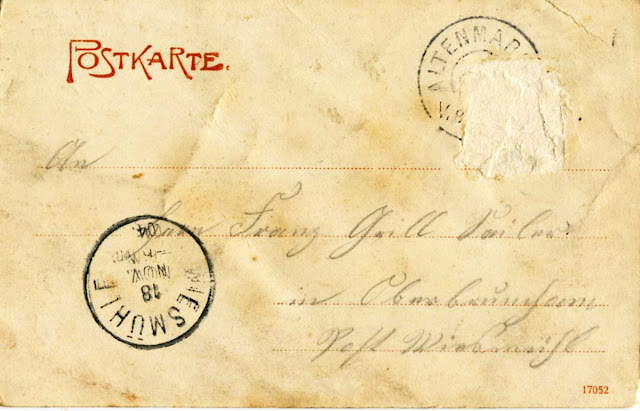 POSTKARTE.
ALTENMAR
An
Herrn Franz Grill Sailer
in Oberbrunham
Post Wiesmühl
WIESMÜHL
18
NOV.
04
17052